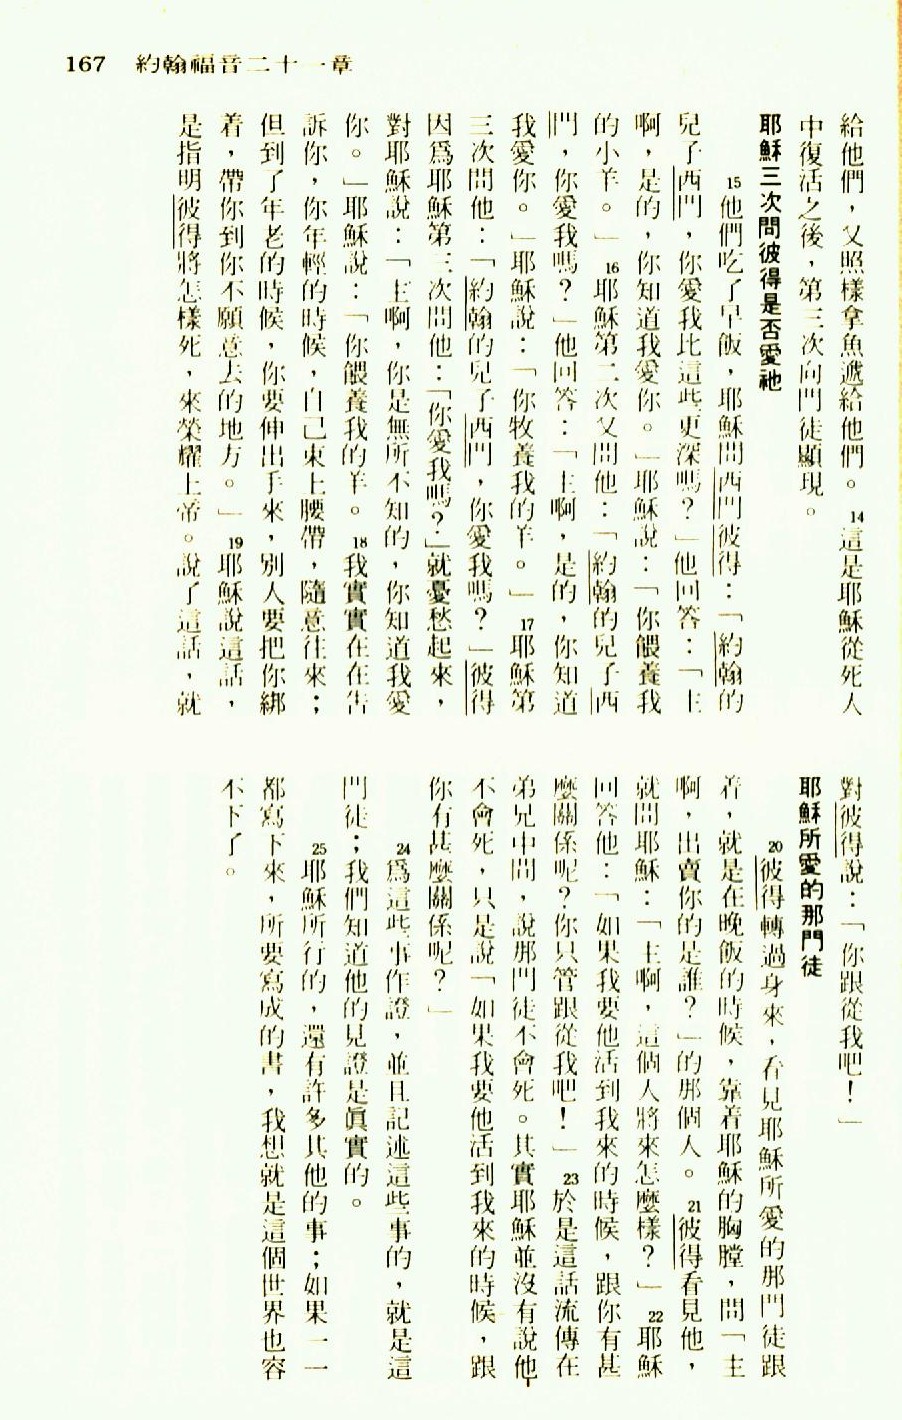 167 約翰福音二十一章
給他們，又照樣拿魚遞給他們。14這是耶穌從死人
中復活之後，第三次向門徒顯現。
耶穌三次問彼得是否愛祂
15他們吃了早飯，耶穌問西門彼得：「約翰的
兒子西門，你愛我比這些更深嗎？」他回答：「主
啊，是的，你知道我愛你。」耶穌說：「你餵養我
的小羊。」16耶穌第二次又問他：「約翰的兒子西
門，你愛我嗎？」他回答：「主啊，是的，你知道
我愛你。」耶穌說：「你牧養我的羊。」17耶穌第
三次問他：「約翰的兒子西門，你愛我嗎？」彼得
因爲耶穌第三次問他：「你愛我嗎？」就憂愁起來，
對耶穌說：「主啊，你是無所不知的，你知道我愛
你。」耶穌說：「你餵養我的羊。18我實實在在告
訴你，你年輕的時候，自己束上腰帶，隨意往來；
但到了年老的時候，你要伸出手來，別人要把你綁
着，帶你到你不願意去的地方。」19耶穌說這話，
是指明彼得將怎樣死，來榮耀上帝。說了這話，就
對彼得說：「你跟從我吧！」
耶穌所愛的那門徒
20彼得轉過身來，看見耶穌所愛的那門徒跟
着，就是在晚飯的時候，靠着耶穌的胸膛，問「主
啊，出賣你的是誰？」的那個人。21彼得看見他，
就問耶穌：「主啊，這個人將來怎麼樣？」22耶穌
回答他：「如果我要他活到我來的時候，跟你有甚
麼關係呢？你只管跟從我吧！」23於是這話流傳在
弟兄中間，說那門徒不會死。其實耶穌並沒有說他
不會死，只是說「如果我要他活到我來的時候，跟
你有甚麼關係呢？」
24爲這些事作證，並且記述這些事的，就是這
門徒；我們知道他的見證是眞實的。
25耶穌所行的，還有許多其他的事；如果一一
都寫下來，所要寫成的書，我想就是這個世界也容
不下了。